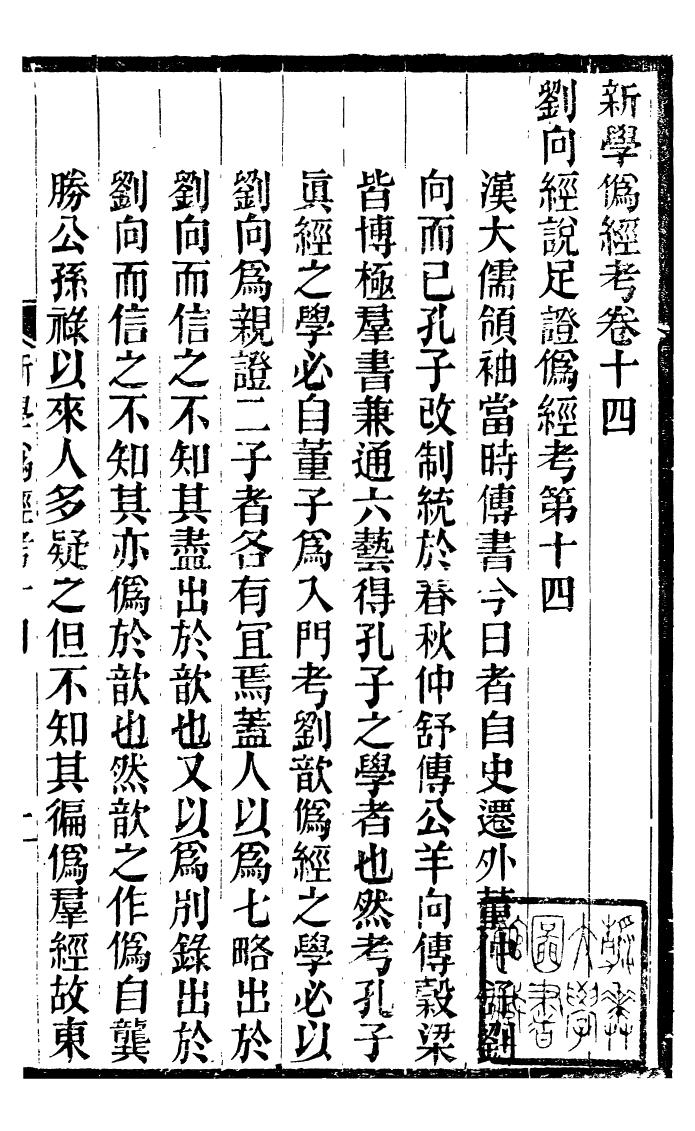 新學僞經考卷十四
劉向經說足證僞經考第十四
漢大儒領袖當時傳書今日者自史遷外董仲舒劉
向而已孔子改制統於春秋仲舒傳公羊向傳穀梁
皆博極羣書兼通六藝得孔子之學者也然考孔子
眞經之學必自董子爲入門考劉歆僞經之學必以
劉向爲親證二子者各有宜焉蓋人以爲七略出於
劉向而信之不知其盡出於歆也又以爲別錄出於
劉向而信之不知其亦僞於歆也然歆之作僞自龔
勝公孫祿以來人多疑之但不知其徧僞羣經故東
新學僞經考十四